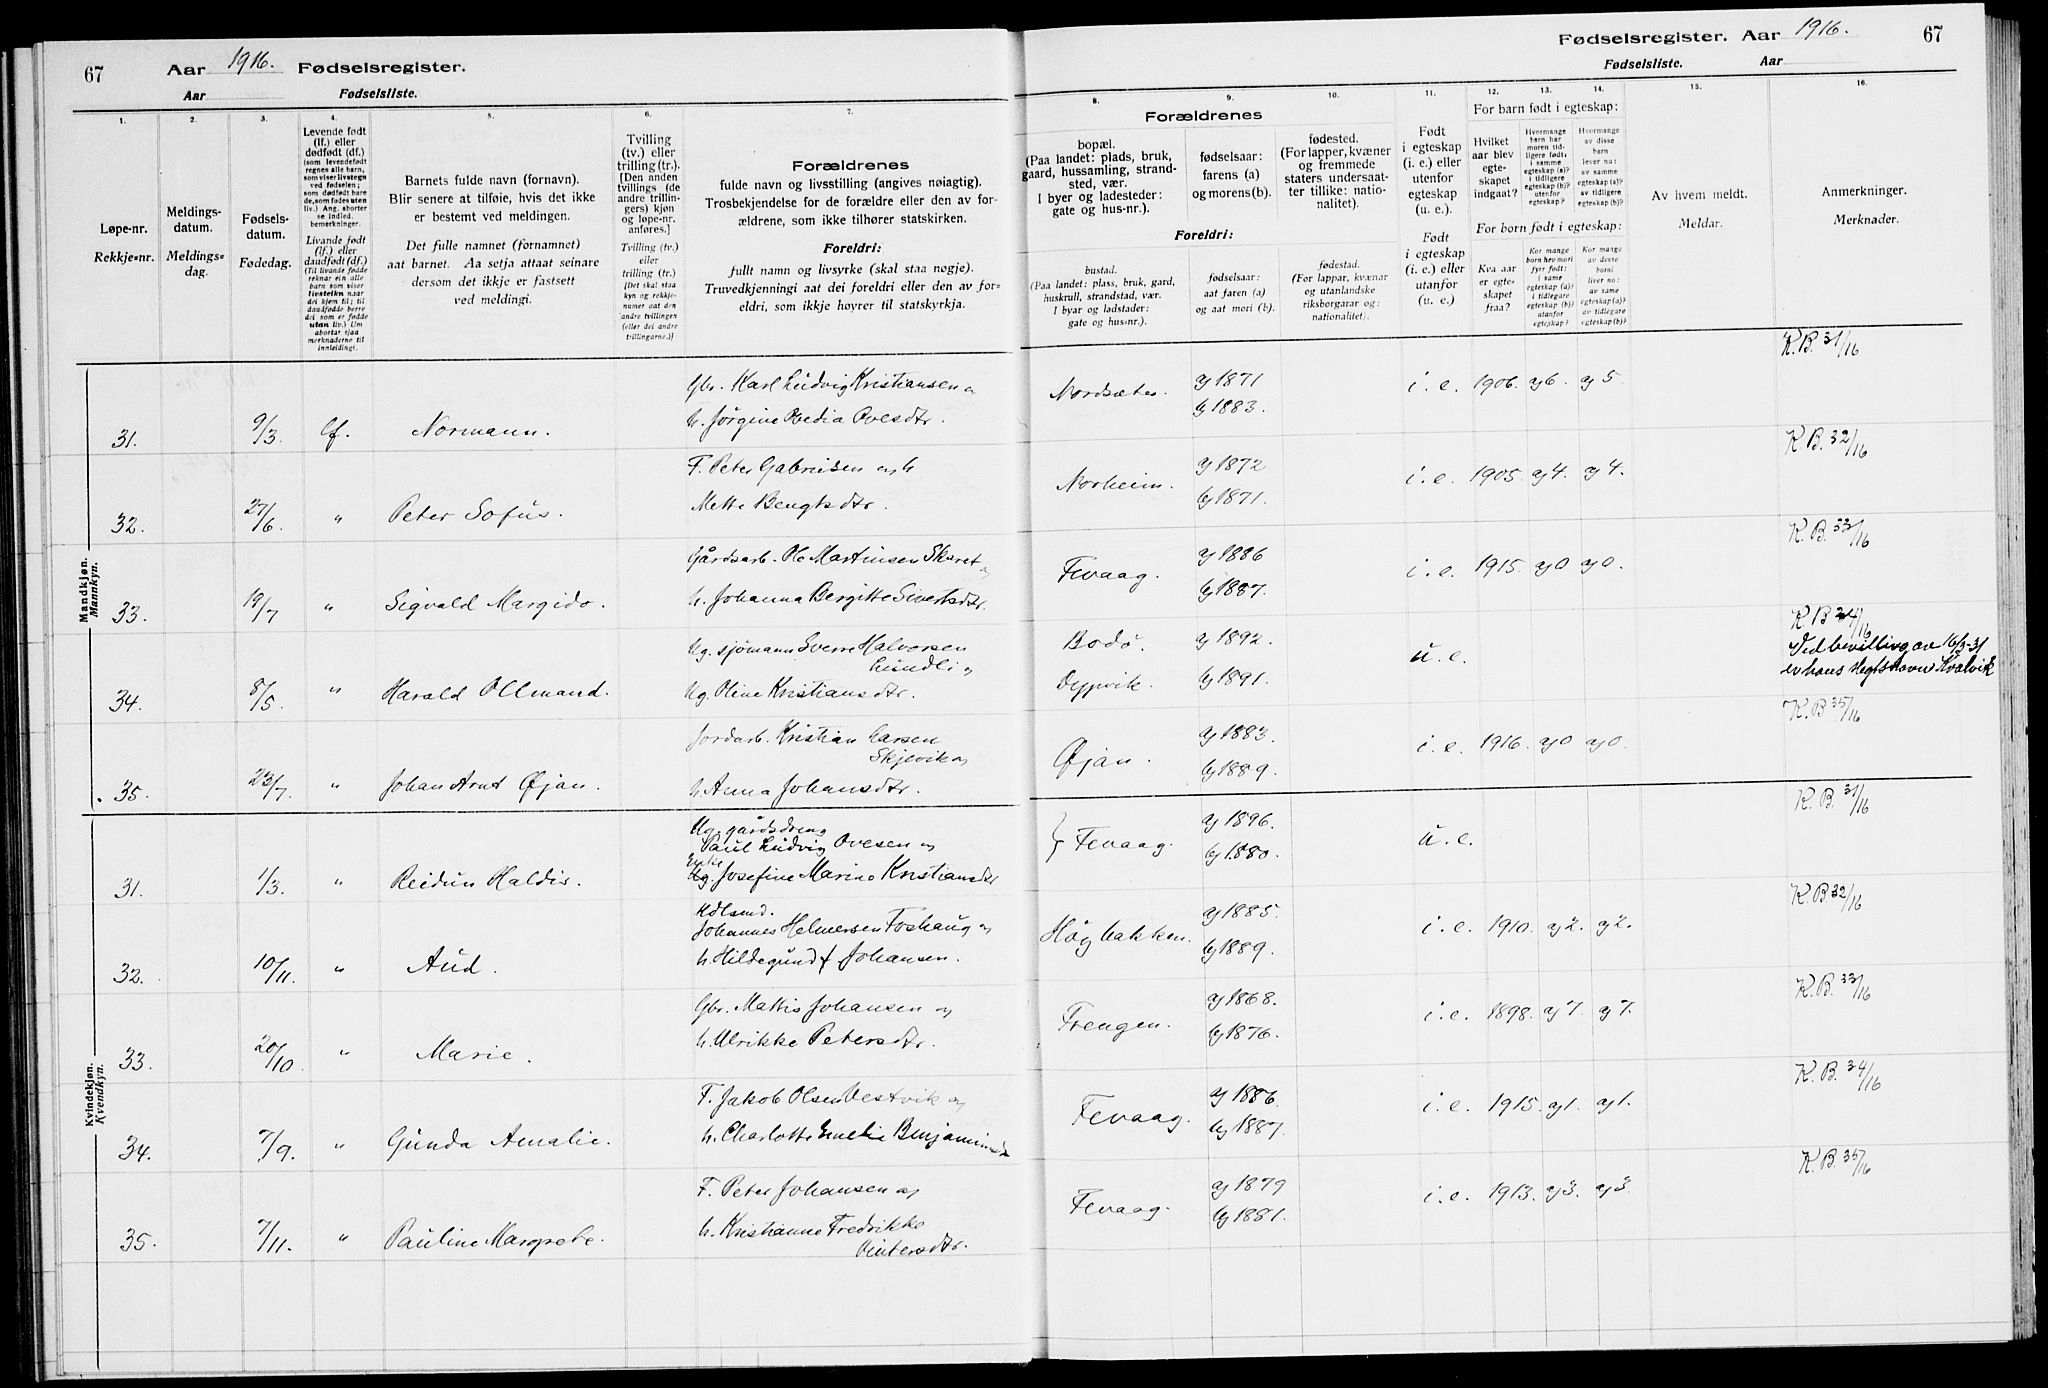 67 Aar 1916. Fødselsregister.
Aar Fødselsliste.
1. 2. 3. 4. 5. 6. 7.
Løpe-nr.
Rekkje-nr.
Meldings-
datum.
Meldings-
dag.
Fødsels-
datum.
Fødedag.
Levende født
(lf.) eller
dødfødt (df.)
(som levendefødt
regnes alle barn,
som viser livstegn
ved fødselen;
som dødfødt bare
de, som fødes uten
liv.) Ang. aborter
se indled.
bemerkninger.
Livande født
(lf.) eller
daudfødt (df.)
(Til livande fødde
reknar ein alle
born som viser
livsteikn naar
dei kjem til; til
daudfødde berre
dei som er fødde
utan liv.) Um
abortar sjaa
merknaderne til
innleidingi.
Barnets fulde navn (fornavn).
Blir senere at tilføie, hvis det ikke
er bestemt ved meldingen.
Det fulle namnet (fornamnet)
aat barnet. Aa setja attaat seinare
dersom det ikkje er fastsett
ved meldingi.
Tvilling
(tv.) eller
trilling (tr.).
[Den anden
tvillings (de
andre trillin-
gers) kjøn
og løpe-nr.
anføres.]
Tvilling (tv.)
eller
trilling (tr.)
[Det skal staa
kyn og rekkje-
numer aat den
andre tvillingen
(eller dei andre
trillingarne.)]
Forældrenes
fulde navn og livsstilling (angives nøiagtig).
Trosbekjendelse for de forældre eller den av for-
ældrene, som ikke tilhører statskirken.
Foreldri:
fullt namn og livsyrke (skal staa nøgje).
Truvedkjenningi aat dei foreldri eller den av for-
eldri, som ikkje høyrer til statskyrkja.
Mandkjøn.
Mannkyn.
Gbr. Karl Ludvig Kristiansen
31. 9/3. lf. Normann. h. Jørgine Ovesdtr.
F. Peter Gabrielsen og h
32. 27/6. " Peter Sofus. Mette Bengtsdtr.
Gårdsarb. Ole Martinsen Skaret og
33. 19/7 " Sigvald Margido. h. Johanna Bergitte Sivertsdtr.
Ug. sjømann Sverre Halvorsen
Lundli og
34. 8/5. " Harald Ollmand. Ug. Oline Kristiansdtr.
Jordarb. Kristian Larsen
Skjevik og
35. 23/7. " Johan Arnt Øjan. h. Anna Johansdtr.
Kvindekjøn.
Kvendkyn.
Ug. gårdsdreng
Paul Ludvig Ovesen og
Enke
31. 1/3. " Reidun Haldis. Ug. Josefine Marine Kristiansdtr
Johannes Helmersen Foshaug og
32. 10/11. " Aud. h. Hildegund J Johansen.
Gbr. Mattis Johansen og
33. 20/10 " Marie. h. Ulrikke Petersdtr.
F. Jakob Olsen Vestvik og
34. 7/9. " Gunda Amalie. h. Charlotte Emelie Benjaminsd
F. Peter Johansen og
35. 7/11. " Pauline Margrete. h. Kristianne Fredrikke
Vintersdtr.
Fødselsregister. Aar 1916. 67
Fødselsliste. Aar
8. 9. 10. 11. 12. 13. 14. 15. 16.
Forældrenes
bopæl.
(Paa landet: plads, bruk,
gaard, hussamling, strand-
sted, vær.
I byer og ladesteder:
gate og hus-nr.).
fødselsaar:
farens (a)
og morens (b).
fødested.
(For lapper, kvæner
og fremmede
staters undersaat-
ter tillike: natio-
nalitet).
Foreldri:
bustad.
(Paa landet: plass, bruk, gard,
huskrull, strandstad, vær.
I byar og ladstader:
gate og hus-nr.).
fødselsaar:
aat faren (a)
og aat mori (b).
fødestad.
(For lappar, kvænar
og utanlandske
riksborgarar og:
nationalitet).
Født
i egteskap
(i. e.) eller
utenfor
egteskap
(u. e.).
Født
i egteskap
(i. e.) eller
utanfor
(u. e.)
For barn født i egteskap:
Hvilket
aar blev
egte-
skapet
indgaat?
Hvormange
barn har
moren tid-
ligere født:
i samme
egteskap (a)?
i tidligere
egteskap (b)?
utenfor
egteskap?
Hvormange
av disse
barn
lever nu:
av samme
egteskap (a)?
av tidligere
egteskap (b)?
For born født i egteskap:
Kva aar
er egte-
skapet
fraa?
Kor mange
born hev mori
fyrr født:
i same
egteskap (a)?
i tidlegare
egteskap (b)?
utanfor
egteskap?
Kor mange
av desse
borni
liver no:
av same
egteskap (a)?
av tidlegare
egteskap (b)?
Av hvem meldt.
Meldar.
Anmerkninger.
Merknader.
Nordsæter. a) 1871 b) 1883. i. e. 1906. a) 6. a) 5 K.B. 31/16
Norheim. a) 1872 b) 1871. i. e. 1905. a) 4. a) 4. K.B. 32/16
Fevaag. a) 1886 b) 1887. i. e. 1915. a) 0 a) 0. K.B. 33/16
Bodø a) 1892. u. e. K B 34/16
Ved bevilling av 16/3-31
er hans slegtsnavn Kvalvik
Dypvik. b) 1891.
Øjan. a) 1883. b) 1889. i. e. 1916. a) 0 a) 0. K.B. 35/16
} Fevaag. a) 1896. b) 1880. u. e. K.B. 31/16
Høgbakken. a) 1885. b) 1889. i. e. 1910. a) 2. a) 2. K.B. 32/16
Frengen. a) 1868. b) 1876. i. e. 1898. a) 7. a) 7. K.B. 33/16
Fevaag. a) 1886. b) 1887. i. e. 1915. a) 1. a) 1. K.B. 34/16
Fevaag. a) 1879 b) 1881. i. e. 1913. a) 3. a) 3. K.B. 35/16